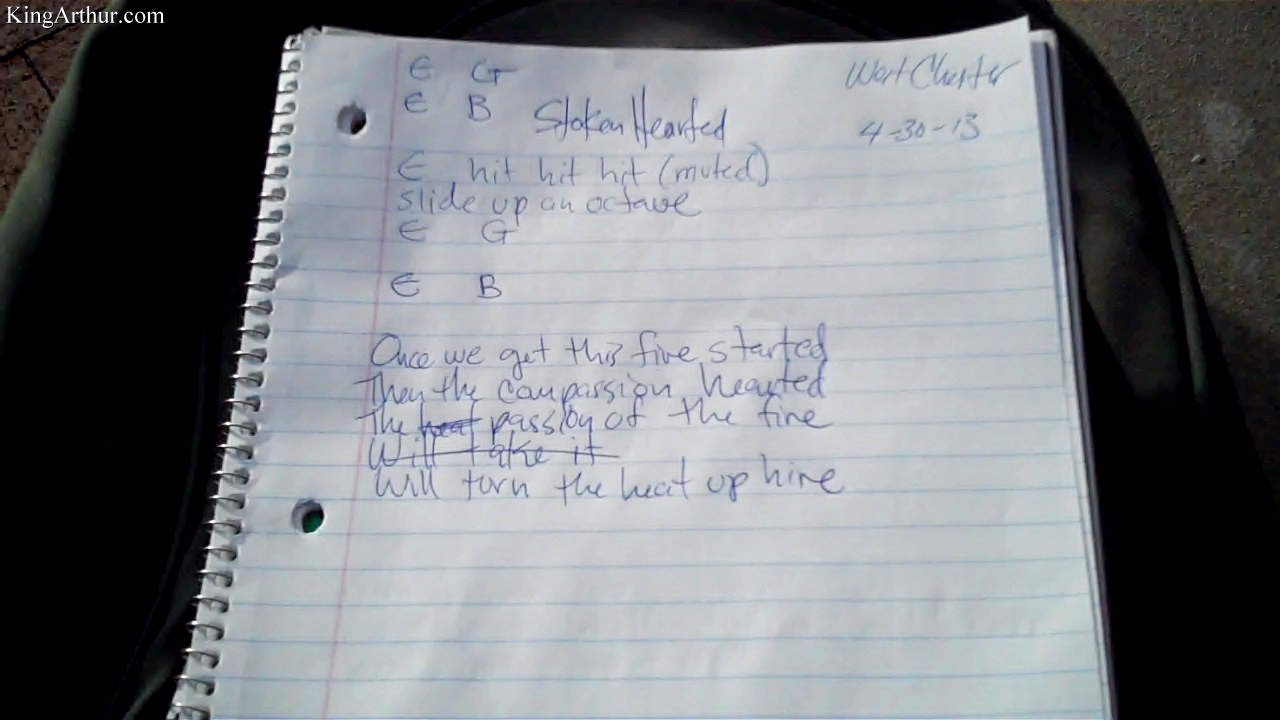 KingArthur.com
E G
West Chester
E B Stoken Hearted
4-30-13
E hit hit hit (muted)
slide up an octave
E G
E B
Once we get this fire started
Then the compassion hearted
The heat passion of the fire
Will take it
Will turn the heat up hire